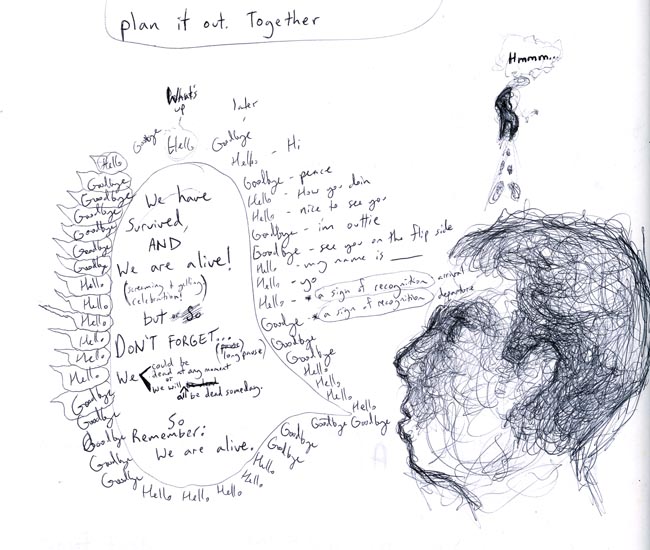 plan it out. Together
Hmmm...
What's
up
later
Goodbye
Hello
Goodbye
Hello - Hi
Goodbye - peace
Hello - How you doin
Hello - nice to see you
Goodbye - im outtie
Goodbye - see you on the flip side
Hello - my name is ____
Hello - yo
Hello - * a sign of recognition arrival
Goodbye - * a sign of recognition departure
Goodbye
Goodbye
Hello
Hello
Hello
Hello
Goodbye Goodbye
Hello
Goodbye
Goodbye
Goodbye
Goodbye
Goodbye
Goodbye
Hello
Hello
Hello
Hello
Hello
Hello
Goodbye
Goodbye
Goodbye
Goodbye
Goodbye
Hello Hello Hello
Hello
Hello
Goodbye
Goodbye
We have
Survived,
AND
We are alive!
(screaming & yelling
celebration!)
but or So
DON'T FORGET...
(long pause)
We could be
dead at any moment
or
we will all be dead someday.
So
Remember:
We are alive.